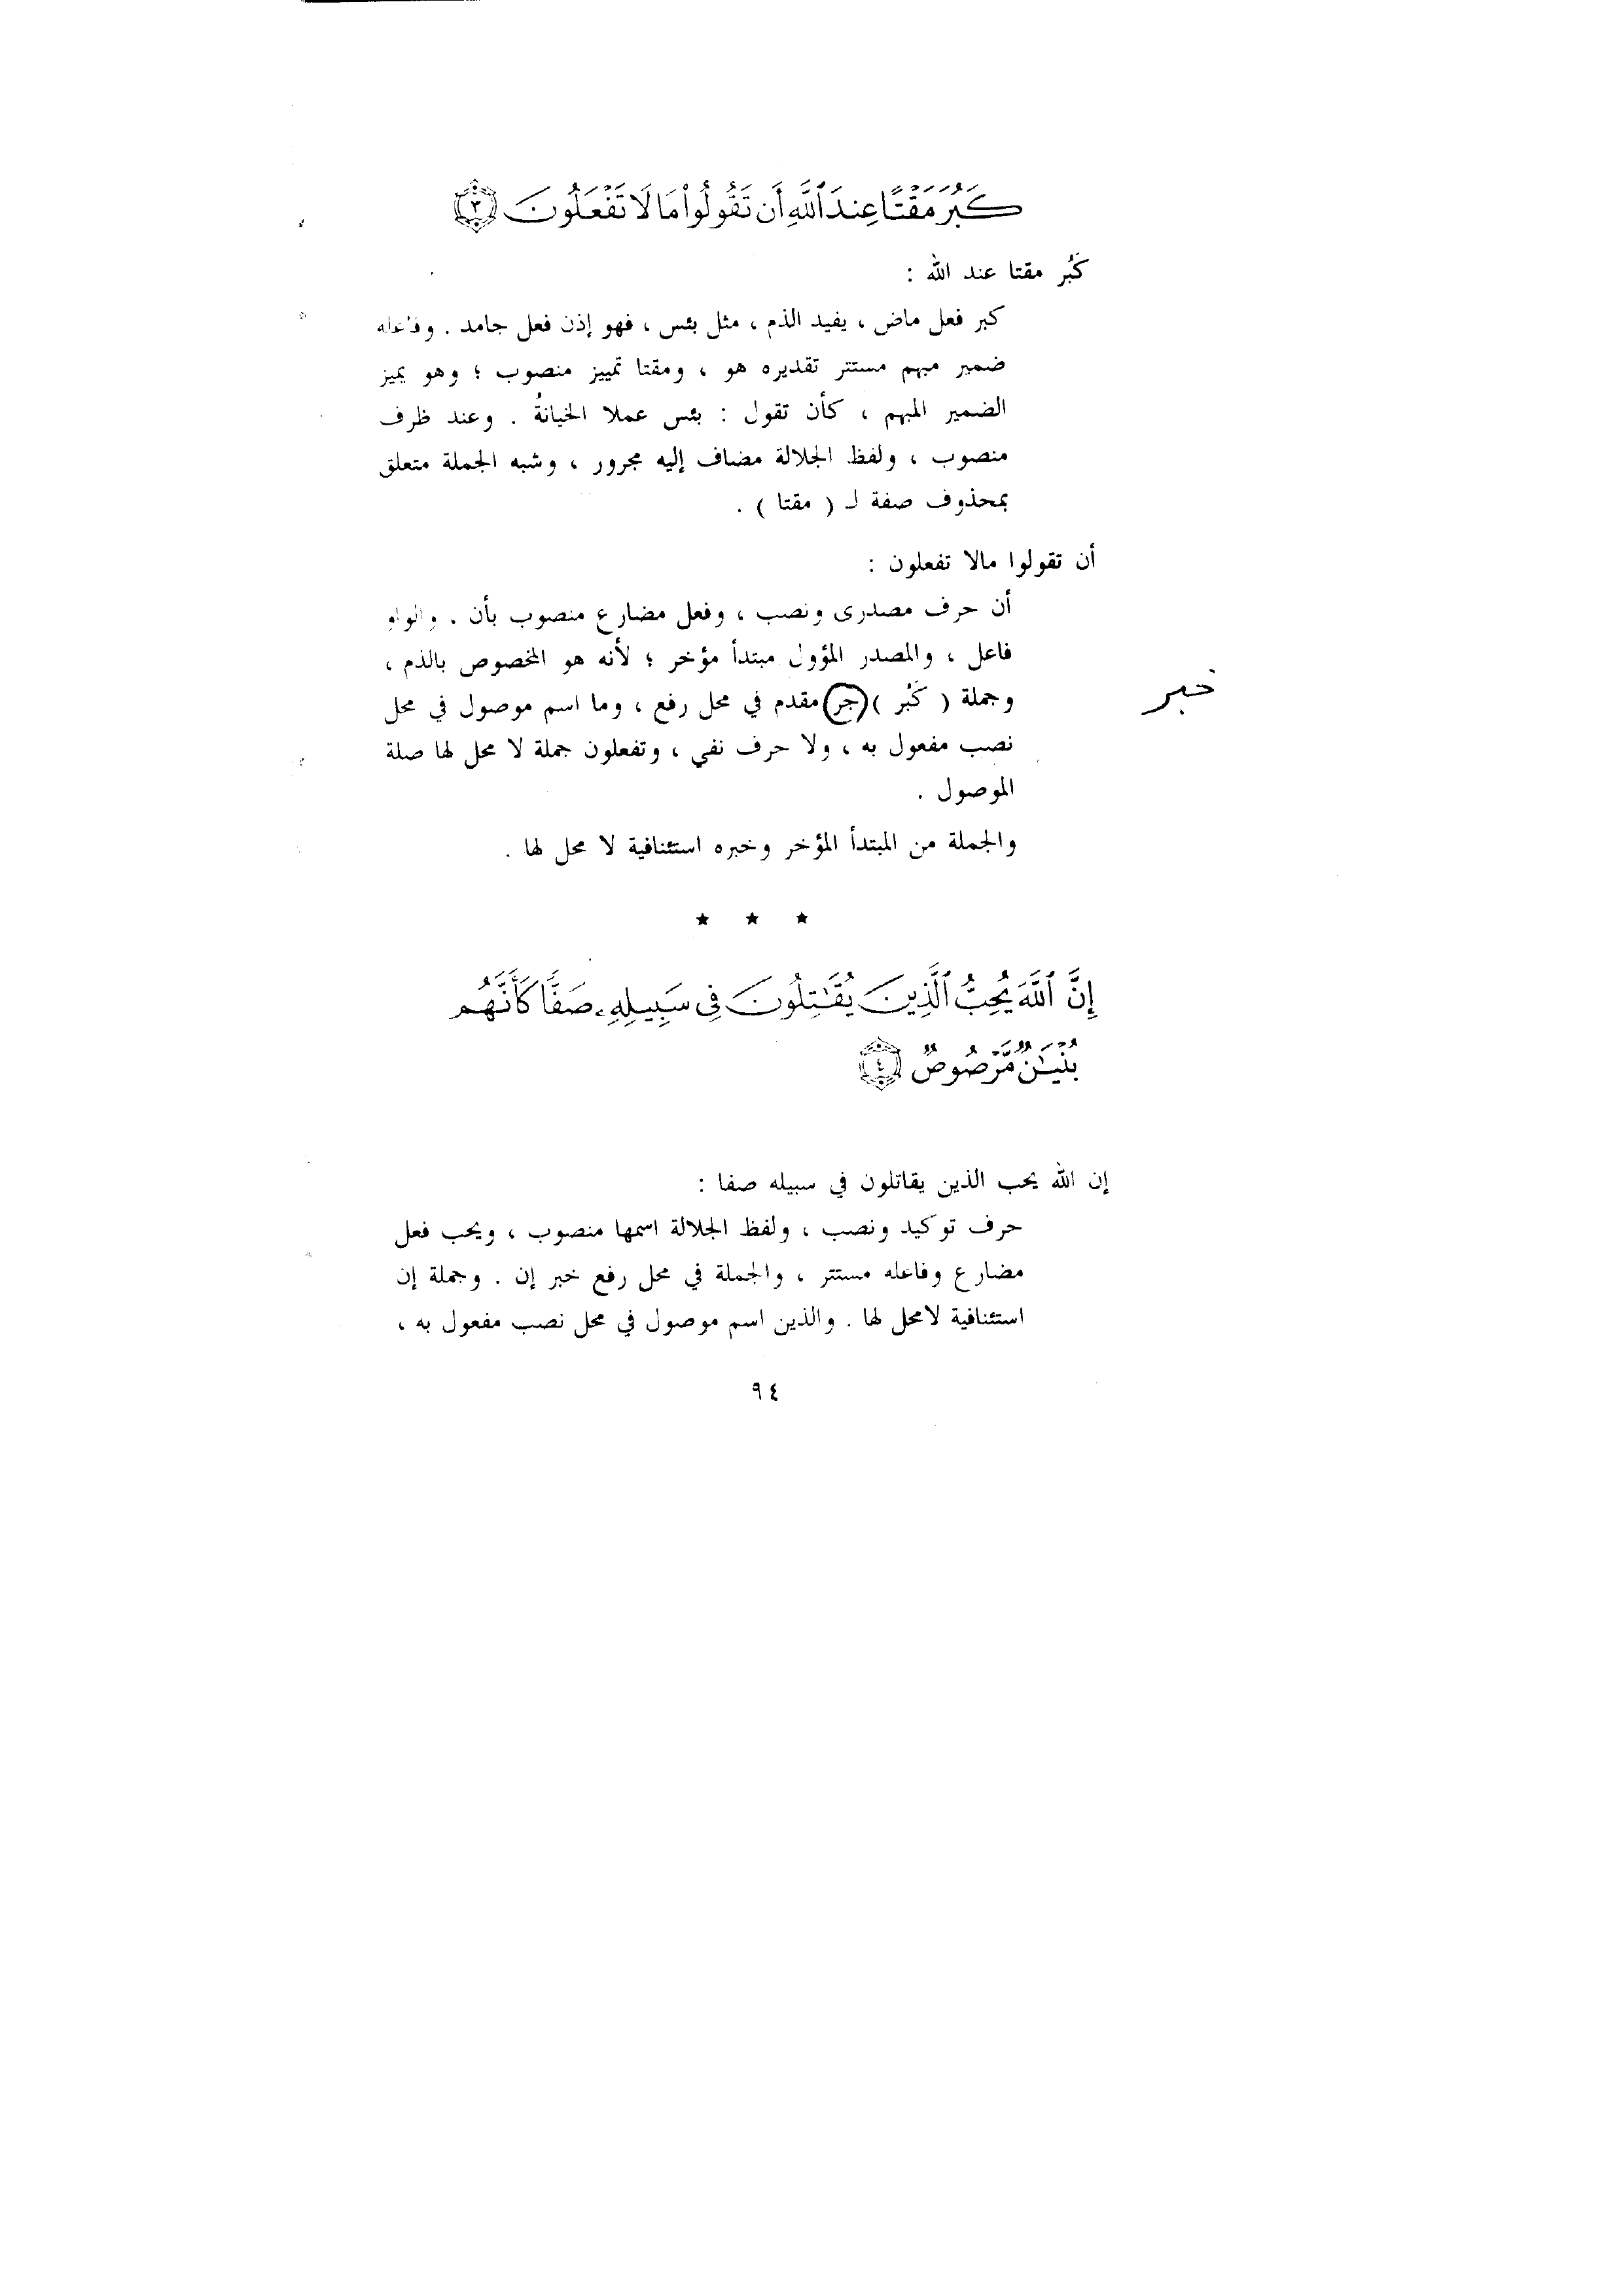 كَبُرَ مَقْتًا عِندَ ٱللَّهِ أَن تَقُولُوا۟ مَا لَا تَفْعَلُونَ ٣
كَبُر مقتا عند الله :
كبر فعل ماض ، يفيد الذم ، مثل بئس ، فهو إذن فعل جامد . وفاعله
ضمير مبهم مستتر تقديره هو ، ومقتا تمييز منصوب ؛ وهو يميز
الضمير المبهم ، كأن تقول : بئس عملا الخيانةُ . وعند ظرف
منصوب ، ولفظ الجلالة مضاف إليه مجرور ، وشبه الجملة متعلق
بمحذوف صفة لـ ( مقتا ) .
أن تقولوا مالا تفعلون :
أن حرف مصدرى ونصب ، وفعل مضارع منصوب بأن . والواو
فاعل ، والمصدر المؤول مبتدأ مؤخر ؛ لأنه هو المخصوص بالذم ،
وجملة ( كَبُر ) جر مقدم في محل رفع ، وما اسم موصول في محل
خبر
نصب مفعول به ، ولا حرف نفي ، وتفعلون جملة لا محل لها صلة
الموصول .
والجملة من المبتدأ المؤخر وخبره استئنافية لا محل لها .
★ ★ ★
إِنَّ ٱللَّهَ يُحِبُّ ٱلَّذِينَ يُقَٰتِلُونَ فِى سَبِيلِهِۦ صَفًّا كَأَنَّهُم
بُنْيَٰنٌ مَّرْصُوصٌ ٤
إن الله يحب الذين يقاتلون في سبيله صفا :
حرف توكيد ونصب ، ولفظ الجلالة اسمها منصوب ، ويحب فعل
مضارع وفاعله مستتر ، والجملة في محل رفع خبر إن . وجملة إن
استئنافية لامحل لها . والذين اسم موصول في محل نصب مفعول به ،
٩٤